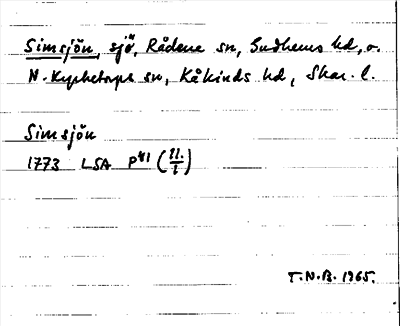 Simsjön, sjö, Rådene sn, Gudhems hd, o.
N. Kyrketorps sn, Kåkinds hd, Skar. l.
Simsjön
1773 LSA P41 (11./1)
T.N.B. 1965.